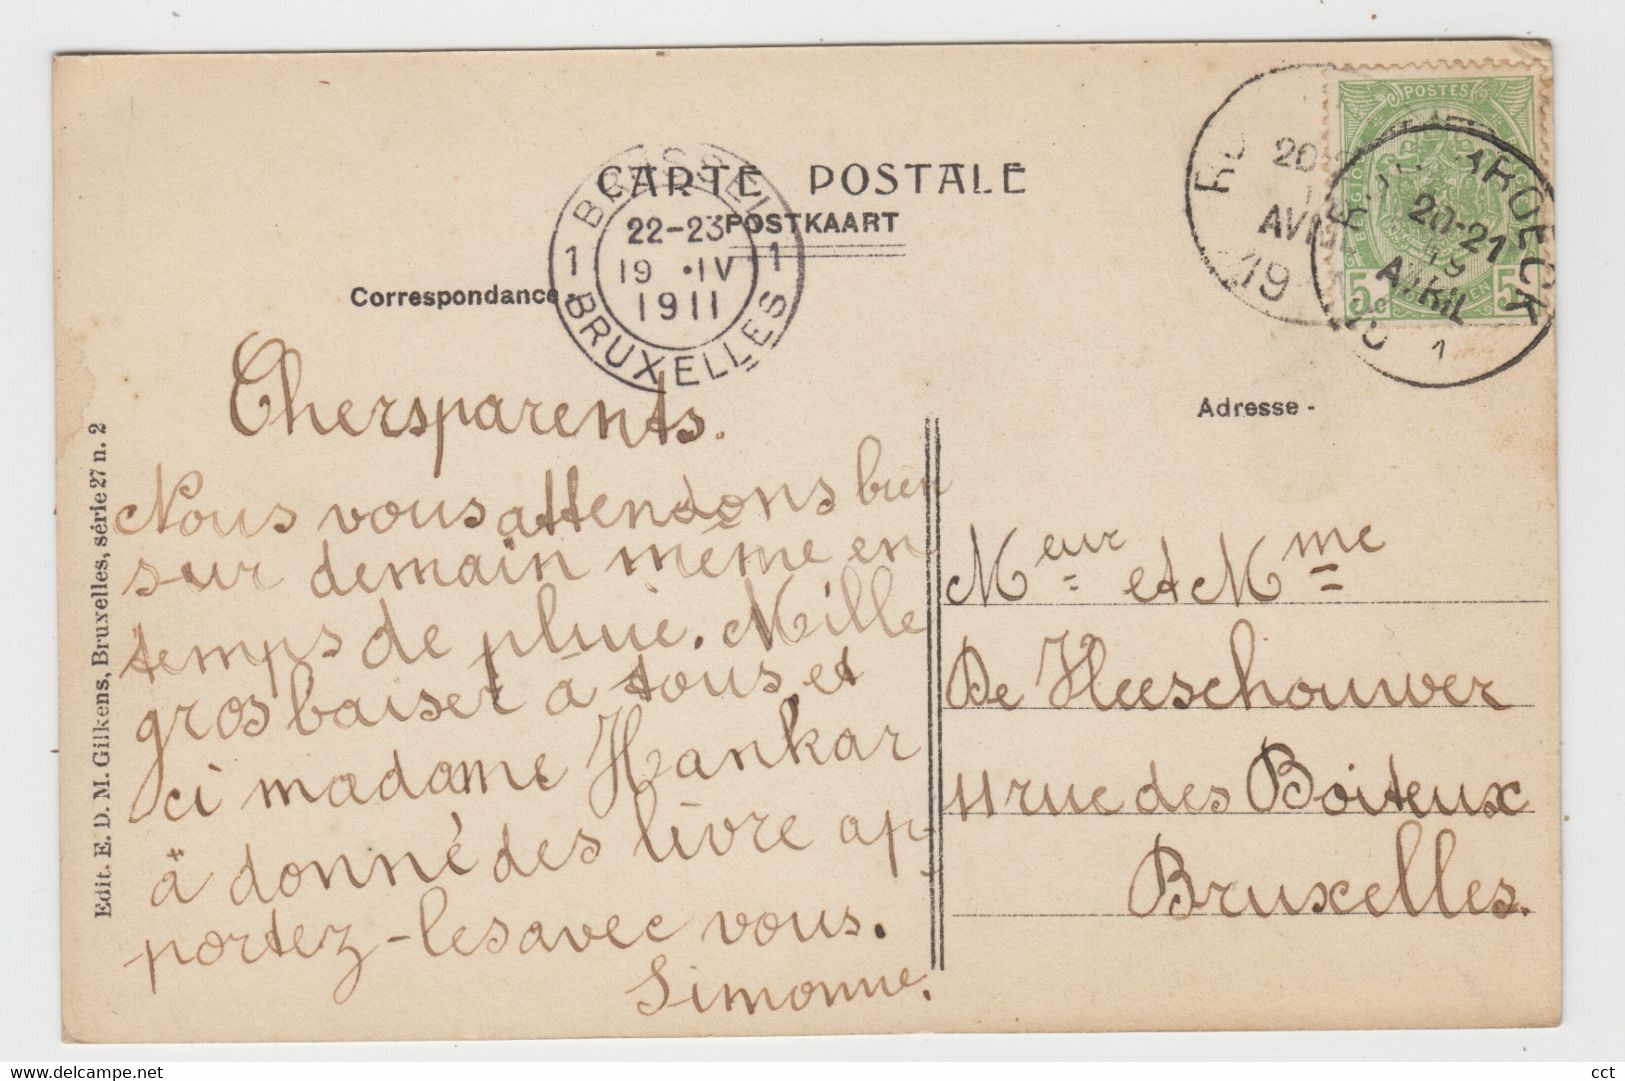 CARTE POSTALE
POSTKAART
Correspondance
BRUSSEL
1 22-23 1
19 .IV
1911
BRUXELLES
POSTES
20-21
19
AVRIL
1
20
AVRIL
19
5c 5c
Adresse -
Edit. E. D. M. Gilkens, Bruxelles, série 27 n. 2
Chersparents.
Nous vous attendons bien
sur demain même en
temps de pluie. Mille
gros baiser à tous et
ci madame Hankar
à donné des livre ap-
portez-les avec vous.
Simonne.
Meur et Mme
De Heeschouwer
11 rue des Boiteux
Bruxelles.
cct
Delcampe.net